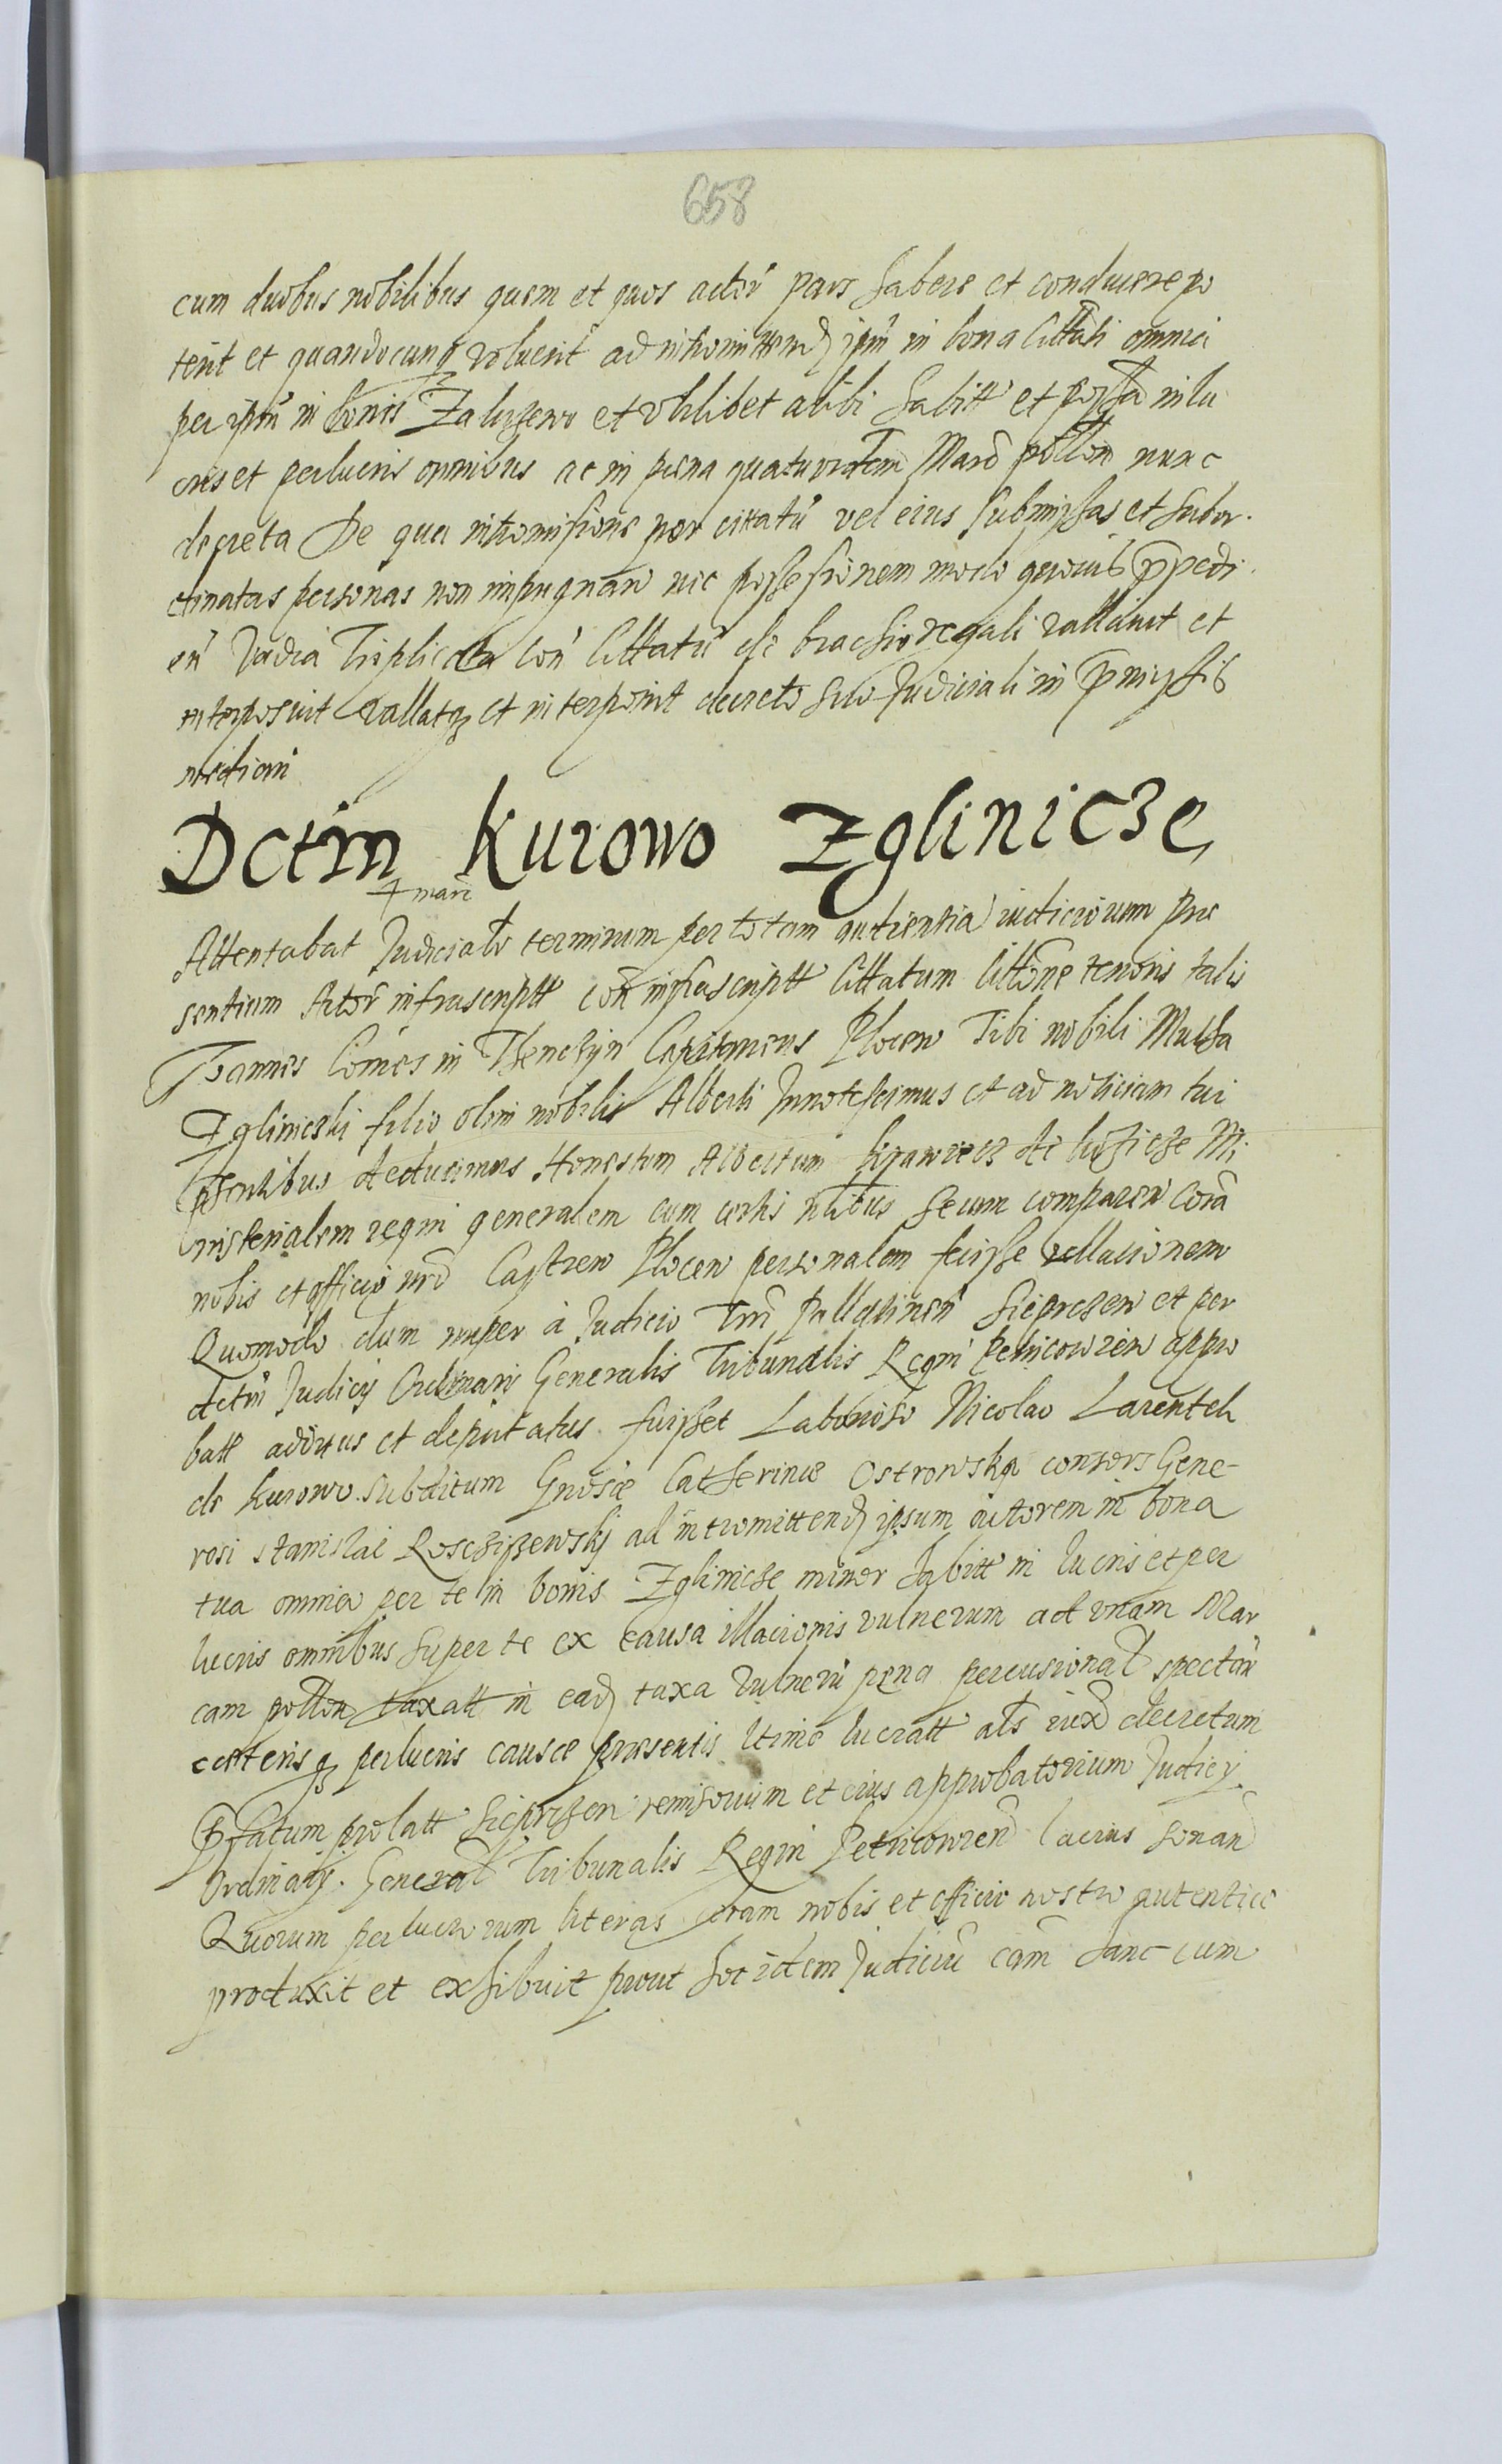 658
cum duobus nobilibus quem et quos actor pars habere et conducere po
terit et quandocunq voluerit ad intromittend ipm in bona Cittati omnia
per ipm in bonis Zaluzewo et vbilibet alibi habitt et possa in lu
cris et perlucris omnibus ac in pena quatuordem Marc pollon nunc
decreta De qua intromisione per cittatu vel eius submissas et subor-
dinatas personas non impugnan nec possessionem modo quouis pped
en Vadia Triplicata con Cittatu de brachio regali vallavit et
interposuit vallatq et interponit decreto suo Judiciali in pmissis
mediani
Dctm Kurowo Zglinicze
+ mari
Attentabat Judicialr terminum per totam audientia iudiciorum pre
sentium Actor infrascriptt con infrascriptt Cittatum Citone tenoris talis
Joannes Comes in Thenczyn Capitaneus Plocen Tibi nobili
Zgliniczki filio olim nobilis Alberti Innotescimus et ad noticiam tui
pntibus deducimus Honestum Albertum Krawiecz de Luszicze Mi
nisterialem regni generalem cum certis nlibus secum comparen Cora
nobis et officio nro Castren Plocen personalem fecisse rellacionem
Quomodo dum nuper a Judicio Trri Pallatinen Sieprczen et per
dctm Judicij Ordinarij Generalis Tribunalis Regni Petricowien appro
batt additus et deputatus fuisset Laborioso Nicolao Larentch
de Kurowo subditum Gnosae Catherinae Ostrowska consors Gene-
rosi Stanislai Rosczissewskj ad intromittend ipsum actorem in bona
tua omnia per te in bonis Zglinicze minor habitt in lucris et per
lucris omnibus super te ex causa illacionis vulnerum ad vnam Mar
cam pollon taxatt in ead taxa vulneru pena percusional spectan
ceterisq perlucris causae praesentis ltime lucratt als iux decretum
Pfatum prolatt Sieprczen remisorium et eius approbatorium Judicij
Ordinarij General Tribunalis Regni Petricowien lacius sonan
Quorum perlucrorum literas coram nobis et officio nostro autentice
produxit et exhibuit prout hoc idem Judiciu eam hanc cum